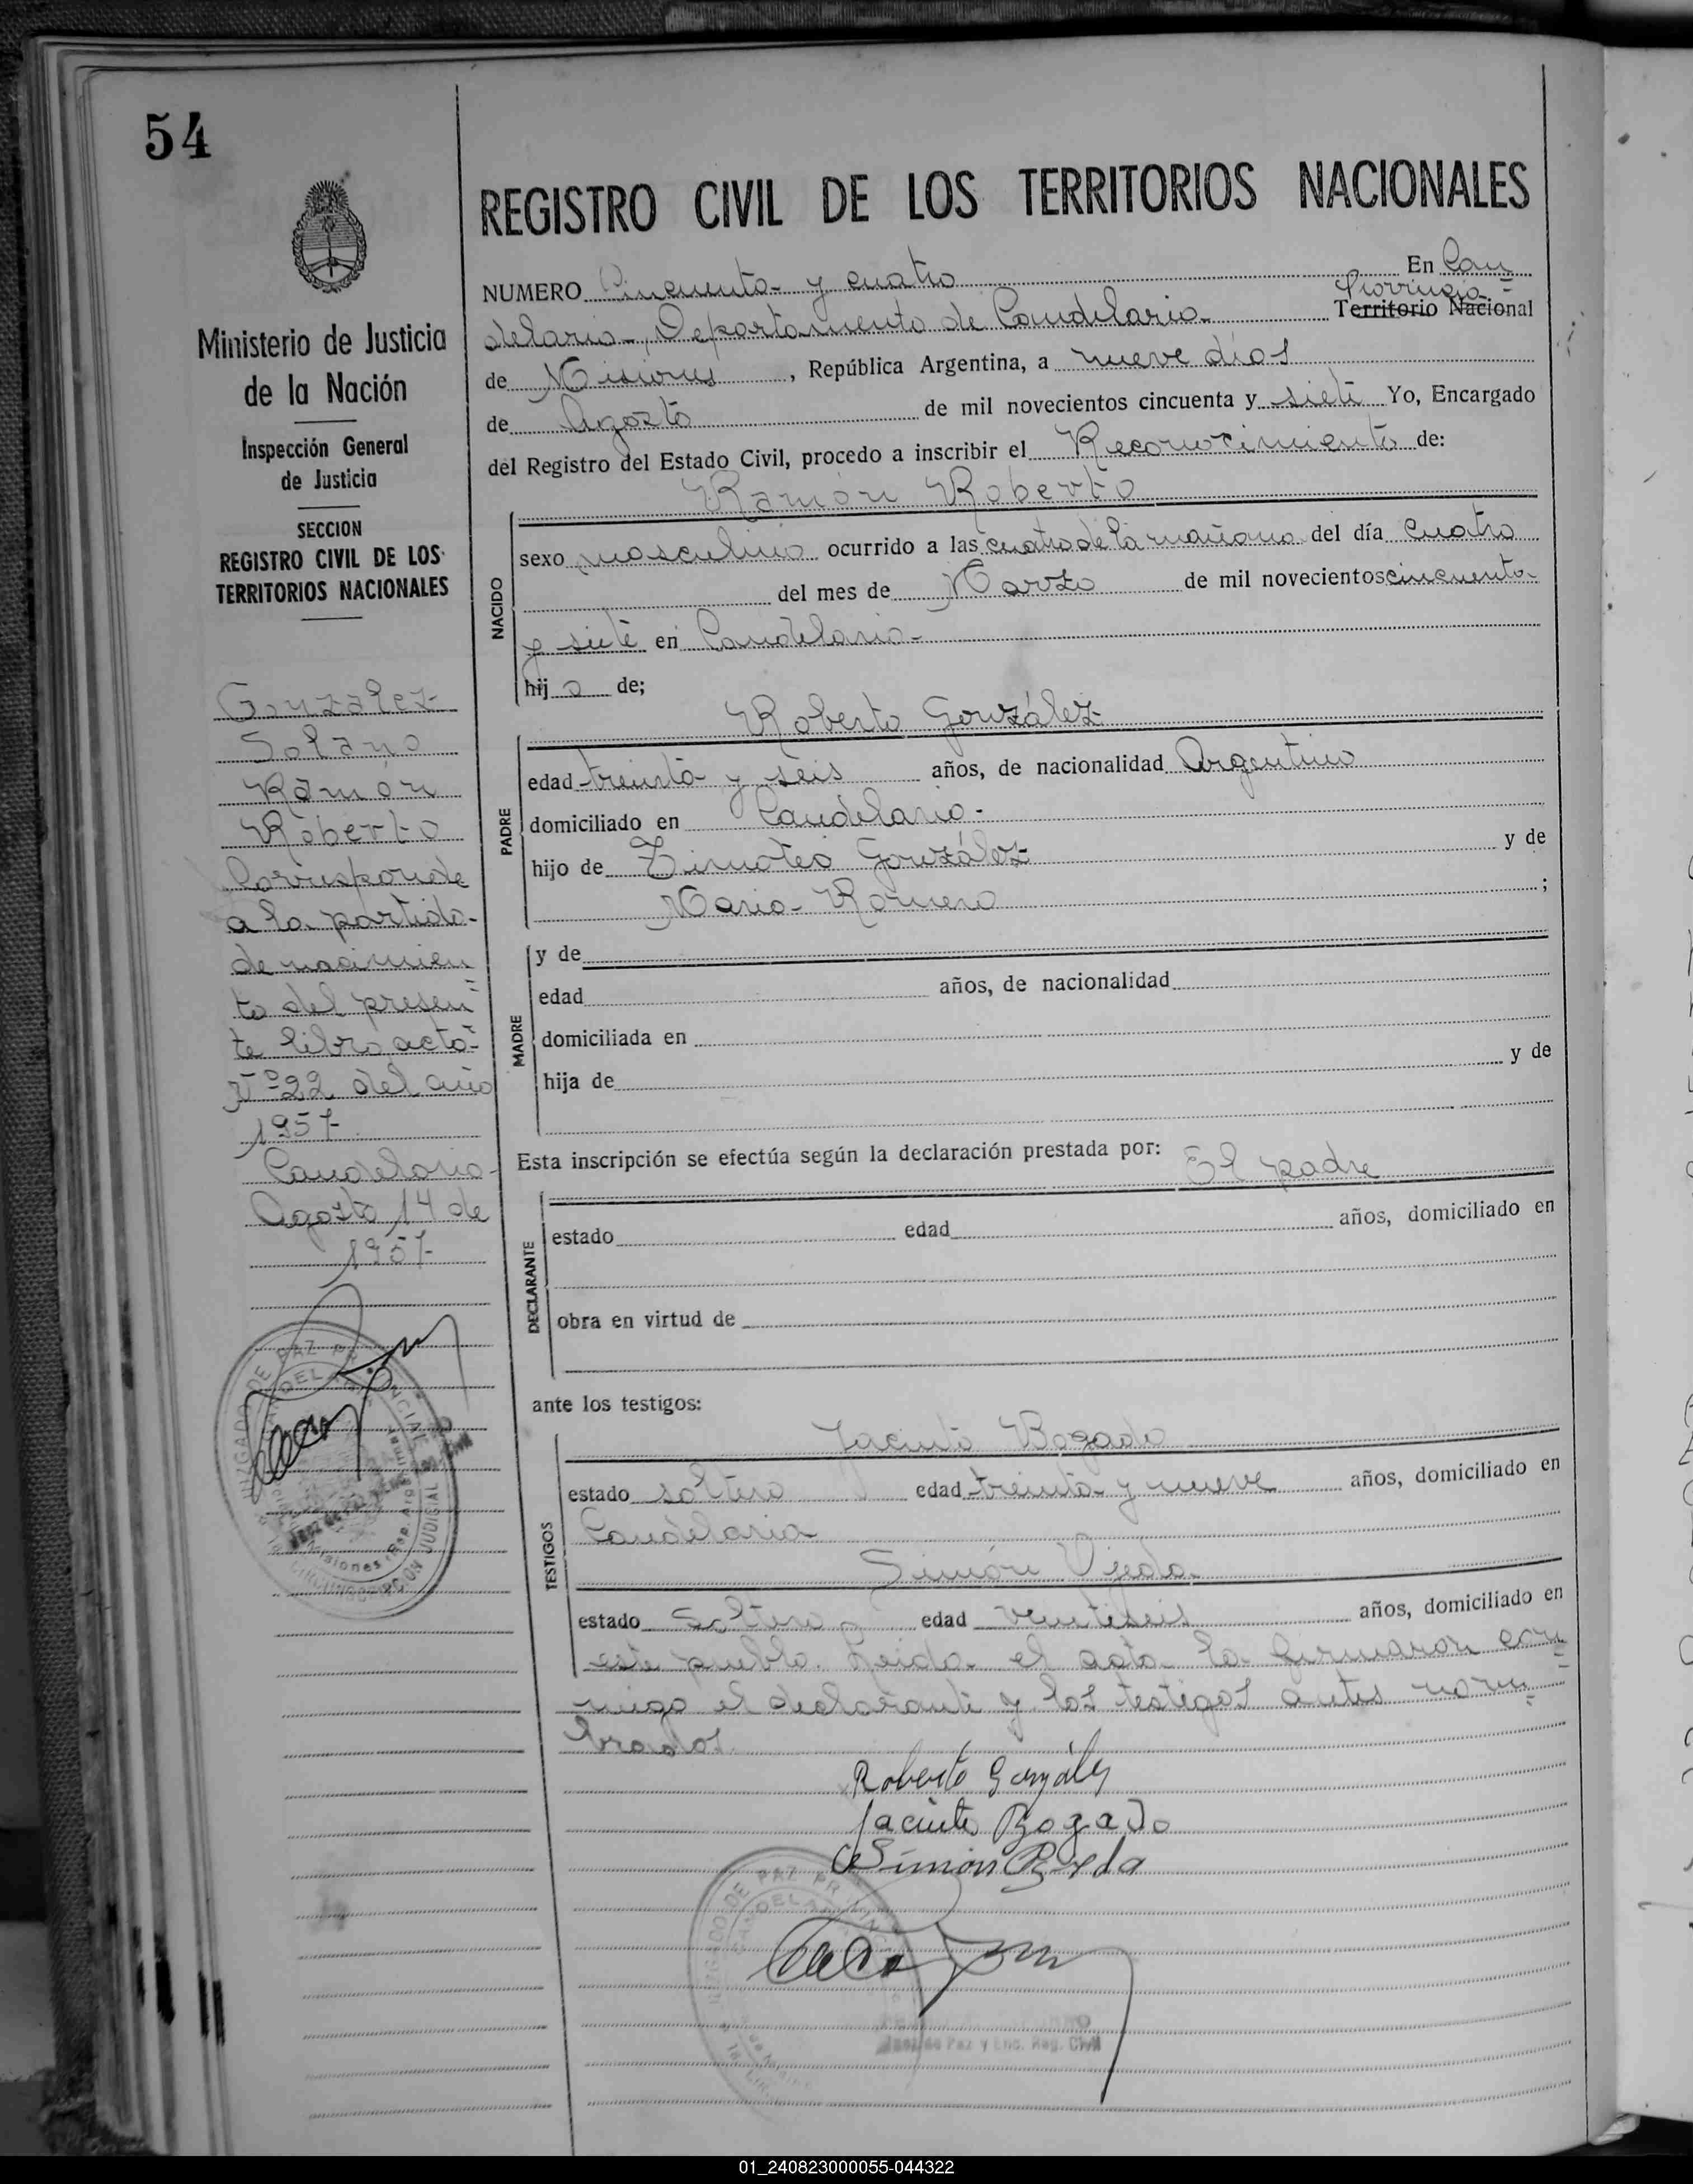 54
Ministerio de Justicia
de la Nación
Inspección General
de Justicia
SECCION
REGISTRO CIVIL DE LOS
TERRITORIOS NACIONALES
Gonzalez
Solano
Ramón
Roberto
Corresponde
a la partida
de nacimien
to del presen
te libro acta
Nº 22 del año
1957
Candelaria
Agosto 14 de
1957
REGISTRO CIVIL DE LOS TERRITORIOS NACIONALES
NUMERO Cincuenta y cuatro En Can
Provincia
delaria, Departamento de Candelaria Territorio Nacional
de Misiones, República Argentina, a nueve días
de Agosto de mil novecientos cincuenta y siete Yo, Encargado
del Registro del Estado Civil, procedo a inscribir el Reconocimiento de:
Ramón Roberto
NACIDO
sexo masculino ocurrido a las cuatro de la mañana del día cuatro
del mes de Marzo de mil novecientos cincuenta
y siete en Candelaria
hijo de;
Roberto González
PADRE
edad treinta y seis años, de nacionalidad Argentino
domiciliado en Candelaria
hijo de Timoteo González y de
Maria Romero ;
MADRE
y de
edad años, de nacionalidad
domiciliada en
hija de y de
Esta inscripción se efectúa según la declaración prestada por: El padre
DECLARANTE
estado edad años, domiciliado en
obra en virtud de
ante los testigos:
TESTIGOS
Jacinto Bogado
estado soltero edad treinta y nueve años, domiciliado en
Candelaria
Simón Ojeda
estado Soltero edad veintiseis años, domiciliado en
este pueblo. Leida el acta la firmaron con
migo el declarante y los testigos antes nom
brados
Roberto González
Jacinto Bogado
Simón Ojeda
JUZGADO DE PAZ
Juez de Paz y Enc. Reg. Civil
01_240823000055-044322